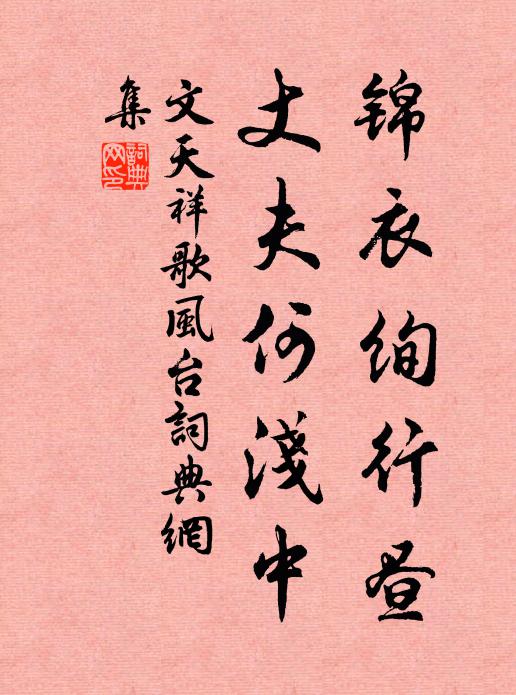 锦衣绚行昼
丈夫何淺中
文天祥歌風台詞典網
集
詞典
网印